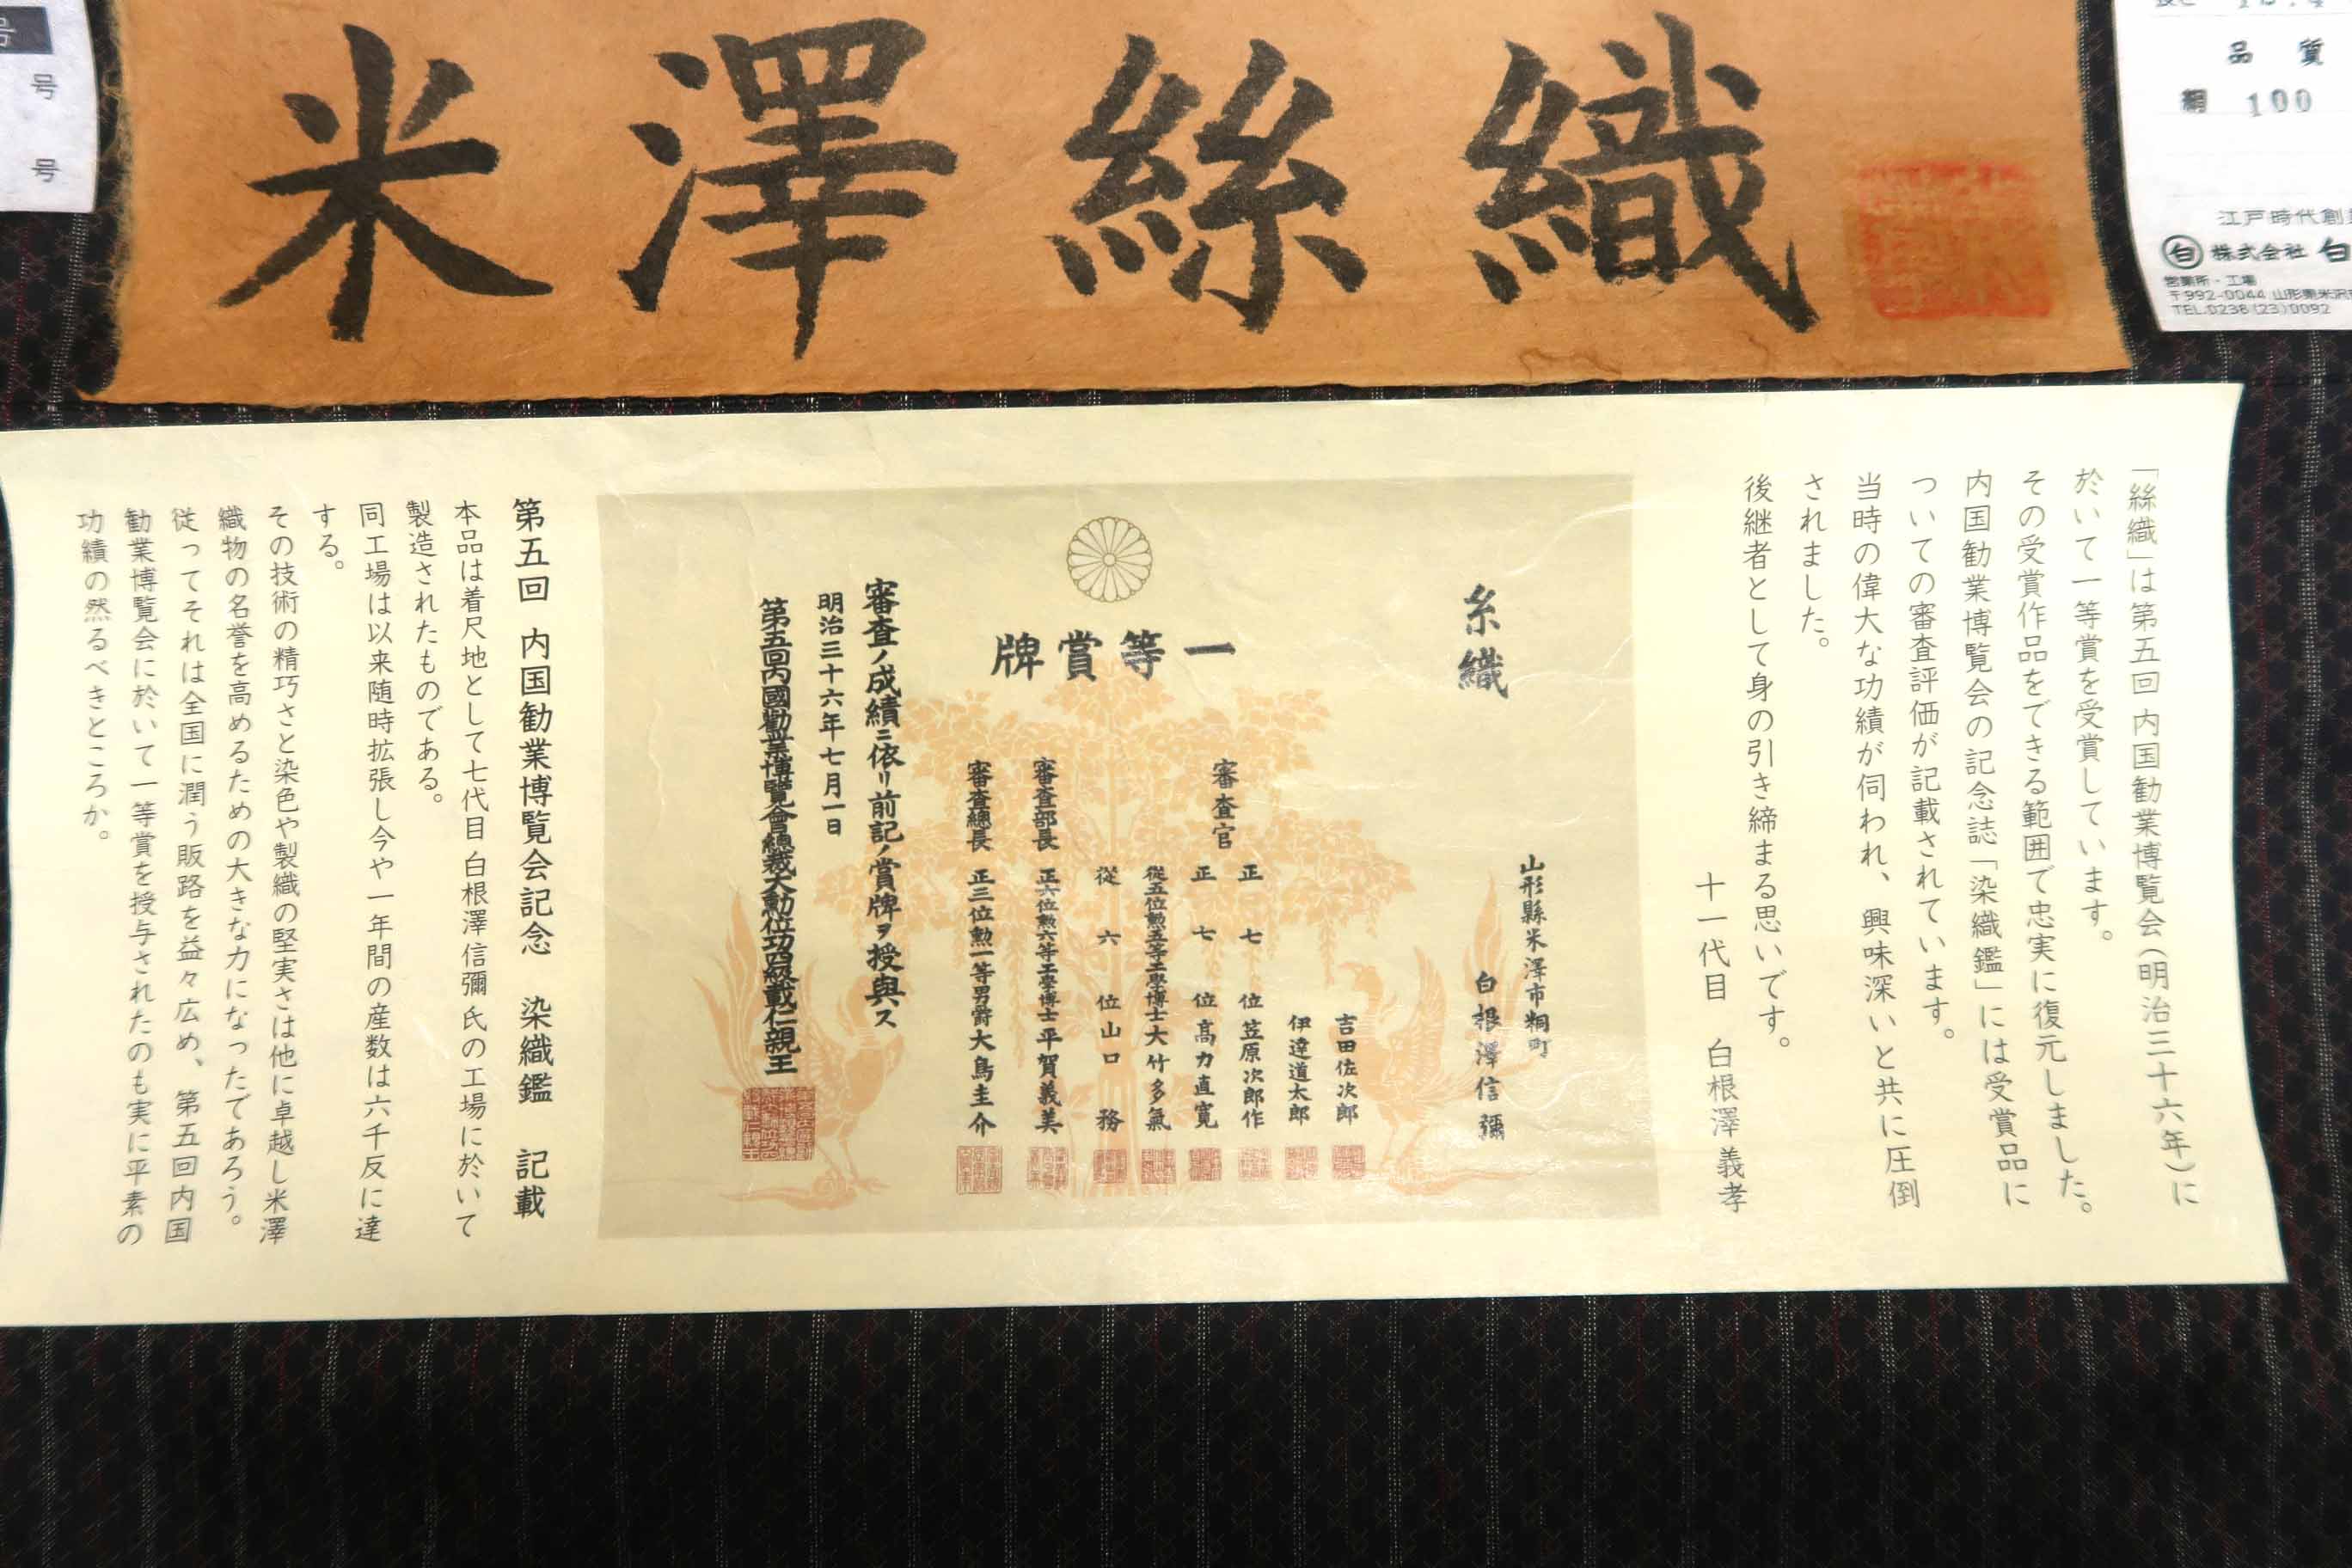 米澤絲織
号
号
号
品質
絹 100
江戸時代創
白 株式会社 白
営業所・工場
〒992-0044 山形県米沢
TEL.0238(23)0092
「絲織」は第五回 内国勧業博覧会(明治三十六年)に
於いて一等賞を受賞しています。
その受賞作品をできる範囲で忠実に復元しました。
内国勧業博覧会の記念誌「染織鑑」には受賞品に
ついての審査評価が記載されています。
当時の偉大な功績が伺われ、興味深いと共に圧倒
されました。
後継者として身の引き締まる思いです。
十一代目 白根澤義孝
糸織
山形縣米澤市桐町
白根澤信彌
一等賞牌
審査官
吉田佐次郎
伊達道太郎
正七位 笠原次郎作
正七位 高力直寛
從五位勲五等工學博士 大竹多氣
從六位 山口務
審査部長 正六位勲六等工學博士 平賀義美
審査總長 正三位勲一等男爵 大鳥圭介
審査ノ成績ニ依リ前記ノ賞牌ヲ授與ス
明治三十六年七月一日
第五回内國勸業博覽會總裁大勲位功四級載仁親王
第五回 内国勧業博覧会記念 染織鑑 記載
本品は着尺地として七代目 白根澤信彌氏の工場に於いて
製造されたものである。
同工場は以来随時拡張し今や一年間の産数は六千反に達
する。
その技術の精巧さと染色や製織の堅実さは他に卓越し米澤
織物の名誉を高めるための大きな力になったであろう。
従ってそれは全国に潤う販路を益々広め、第五回内国
勧業博覧会に於いて一等賞を授与されたのも実に平素の
功績の然るべきところか。